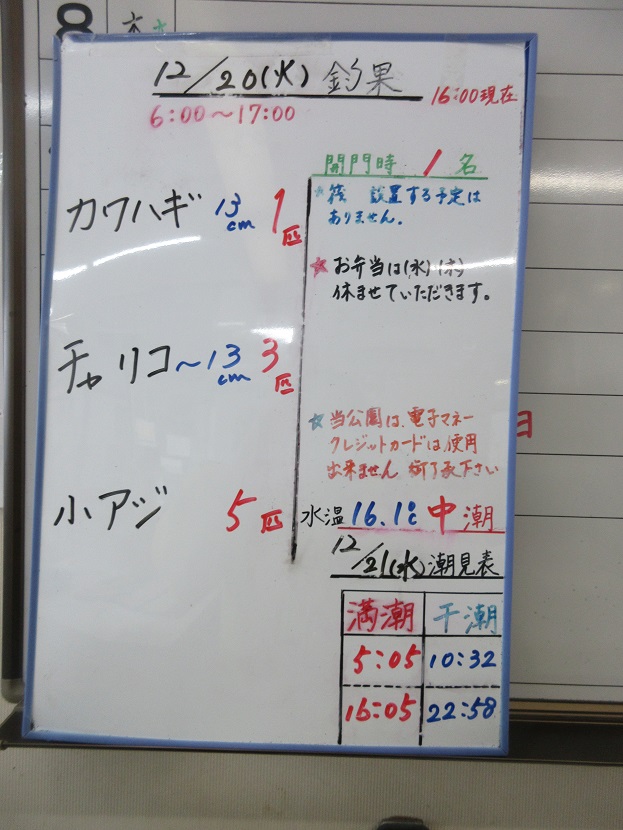 12/20(火) 釣果
16:00現在
6:00〜17:00
カワハギ 13cm 1匹
チャリコ 〜13cm 3匹
小アジ 5匹
開門時 1名
筏 設置する予定は
ありません。
★ お弁当は(水)(木)
休ませていただきます。
☆ 当公園は、電子マネー
クレジットカードは、使用
出来ません 御了承下さい
水温 16.1℃ 中潮
12/21(水)潮見表
満潮 干潮
5:05 10:32
16:05 22:58
8
日